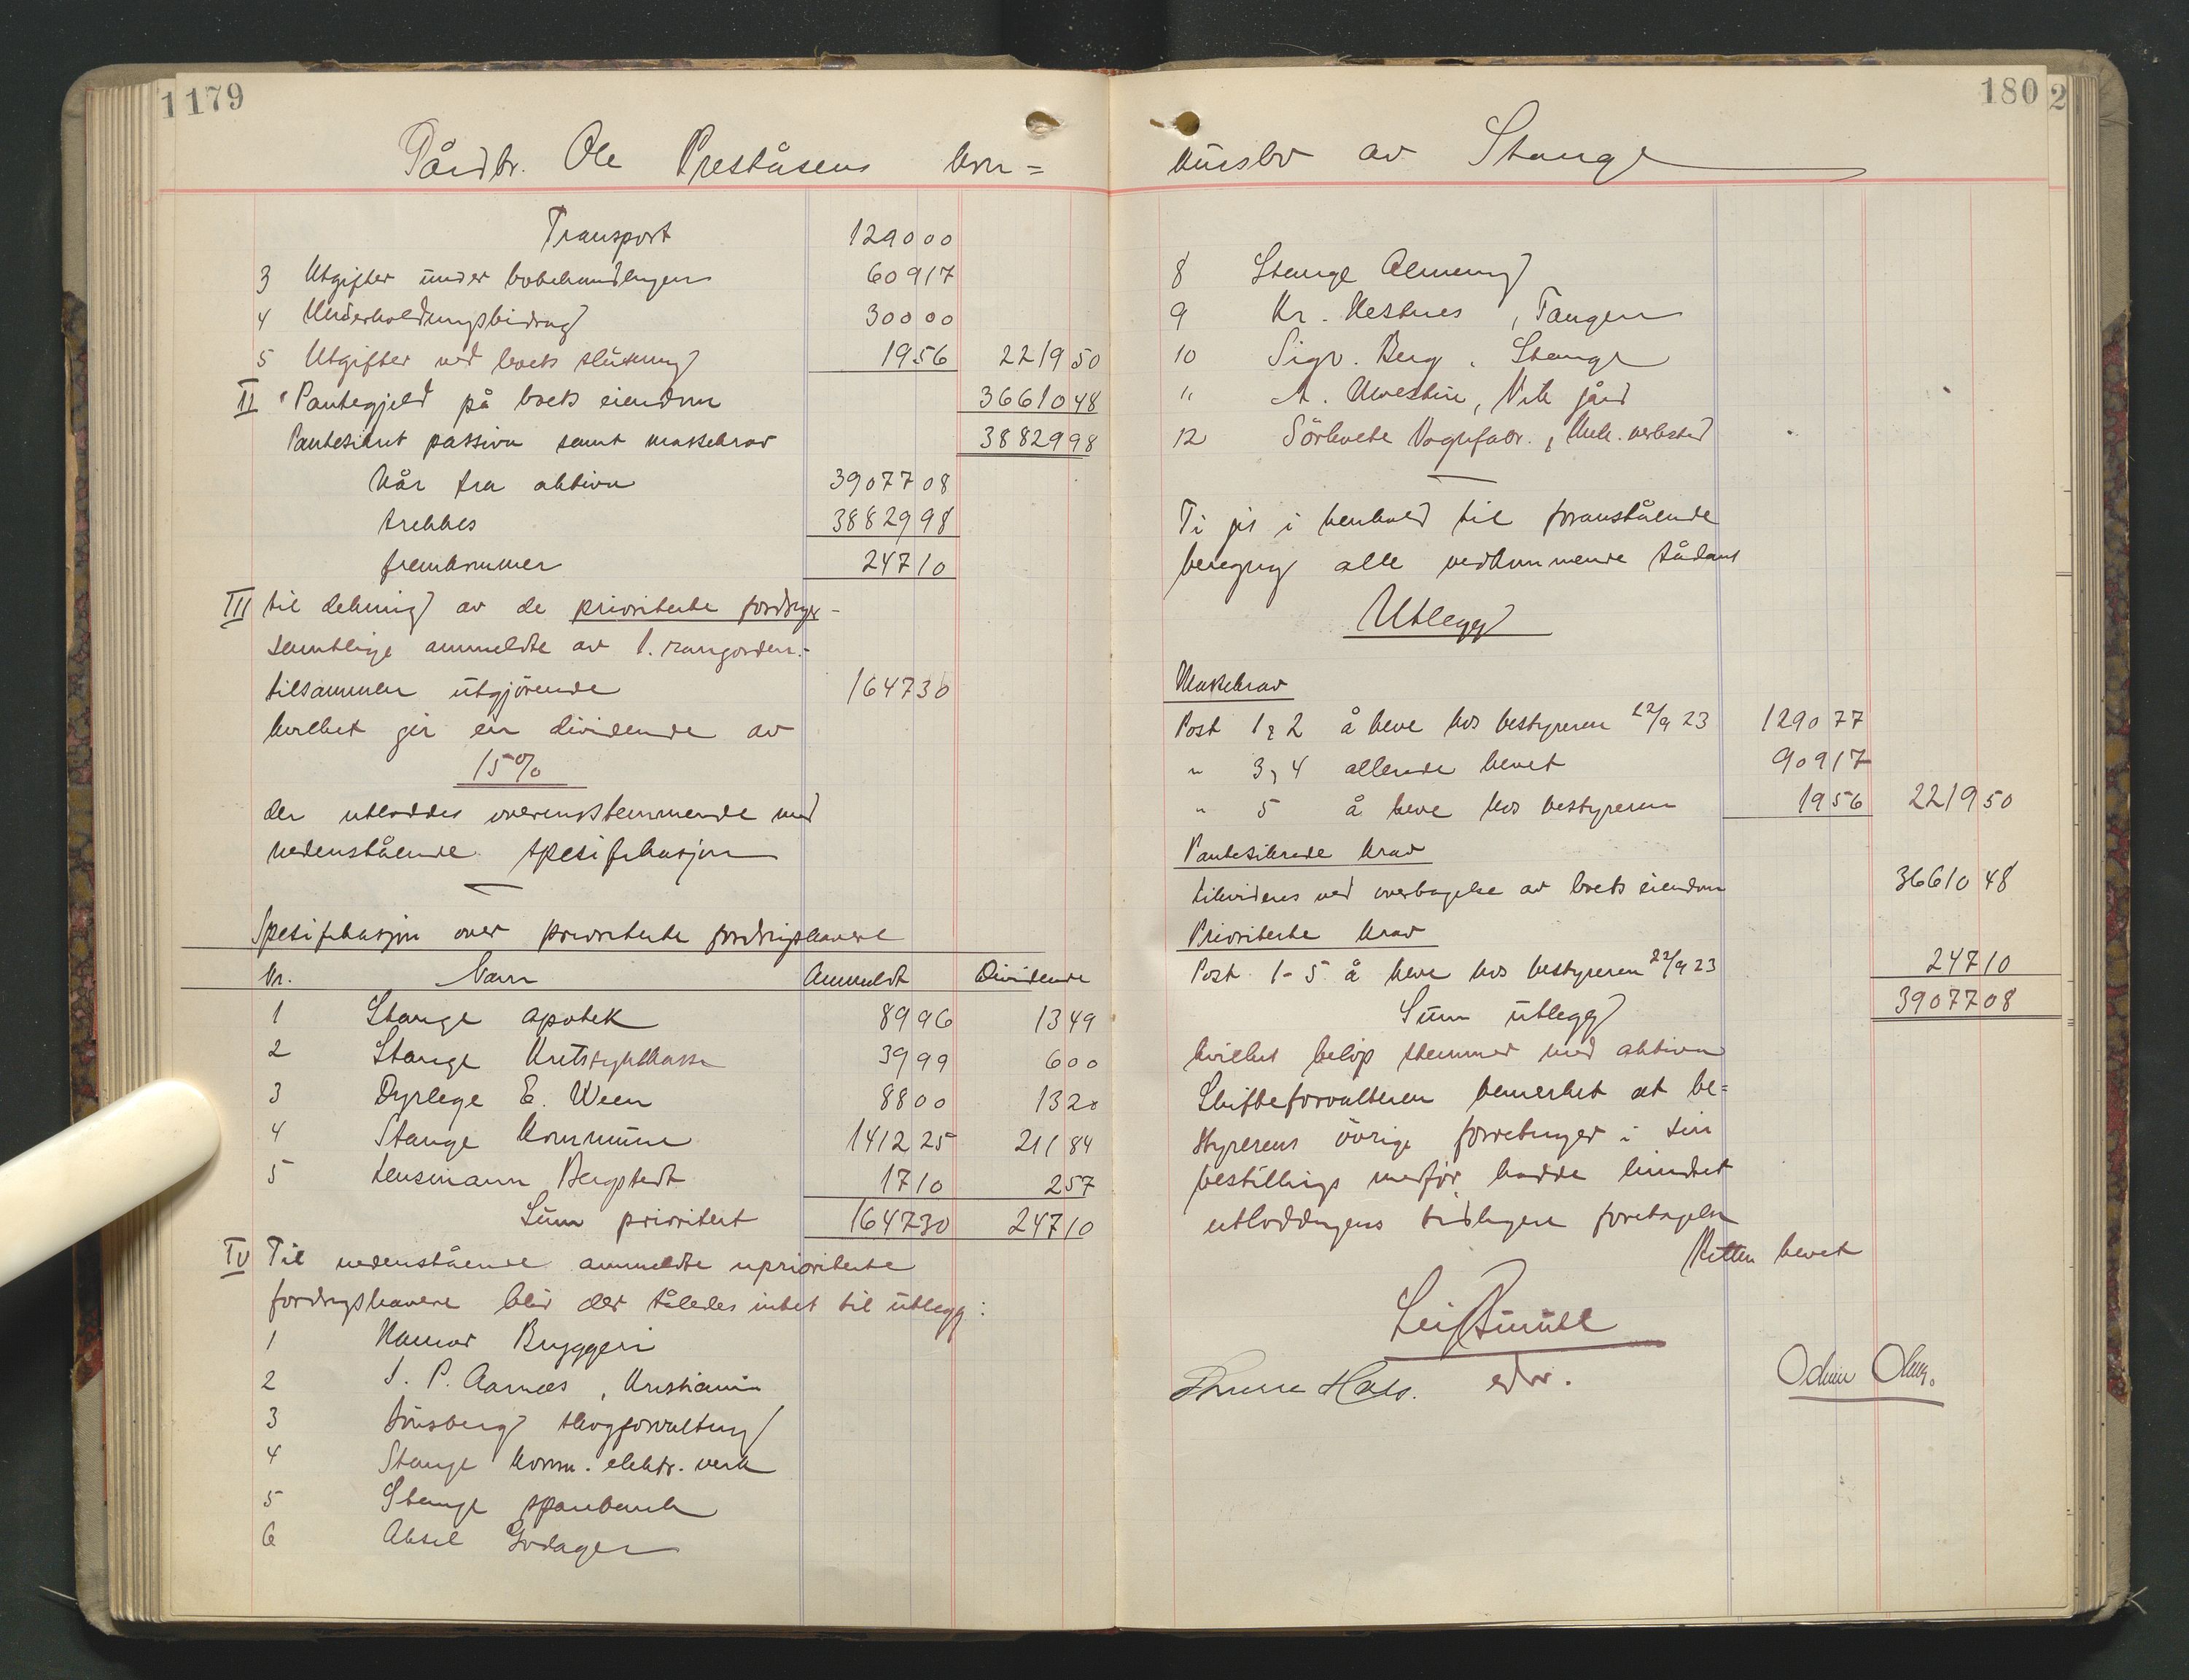 1179
Gårdbr. Ole Preståsens kon=
Transport 1290 00
3 Utgifter under bobehandlingen 609 17
4 Underholdningsbidrag 300 00
5 Utgifter ved boets slutning 19 56 2219 50
II Pantegjeld på boets eiendom 36610 48
Pantesikret passiva samt massekrav 38829 98
Når fra aktiva 39077 08
trekkes 38829 98
fremkommer 247 10
III til dekning av de prioriterte fordringer
samtlige anmeldte av 1. rangorden.
tilsammen utgjørende 1647 30
hvilket gir en dividende av
15%
der utloddes overensstemmende med
nedenstående spesifikasjon
Spesifikasjon over prioriterte fordringshavere
Nr. Navn Anmeldt Dividende
1 Stange apotek 89 96 13 49
2 Stange Kretssykekasse 39 99 6 00
3 Dyrlege E. Ween 88 00 13 20
4 Stange kommune 1412 25 211 84
5 Lensmann Bergstedt 17 10 2 57
Sum prioritert 1647 30 247 10
IV Til nedenstående anmeldte uprioriterte
fordringshavere blir der således intet til utlegg:
1 Hamar Bryggeri
2 I. P. Aarnæs, Kristiania
3 Tønsberg skogforvaltning
4 Stange komm. elektr. verk
5 Stange sparebank
6 Aksel Godager
180 2
kursbo av Stange
8 Stange Almenning
9 Kr. Hestnes, Tangen
10 Sigv. Berg, Stange
11 A. Kverstin, Vik gård
12 Sörhvete Vognfabr., Mek. verksted
Ti gis i henhold til foranstående
beregning alle vedkommende sådant
Utlegg
Massekrav
Post 1 & 2 å heve hos bestyreren 22/9 23 1290 77
" 3, 4 allerede hevet 909 17
" 5 å heve hos bestyreren 19 56 2219 50
Pantesikrede krav
likvideres ved overtagelse av boets eiendom 36610 48
Prioriterte krav
Post 1-5 å heve hos bestyreren 22/9 23 247 10
Sum utlegg 39077 08
hvilket beløp stemmer med aktiva
Skifteforvalteren bemerket at be=
styrerens övrige forretninger i sin
bestillings medfør hadde hindret
utlodningens tidligere foretagelse
Retten hevet
edv.
Odin